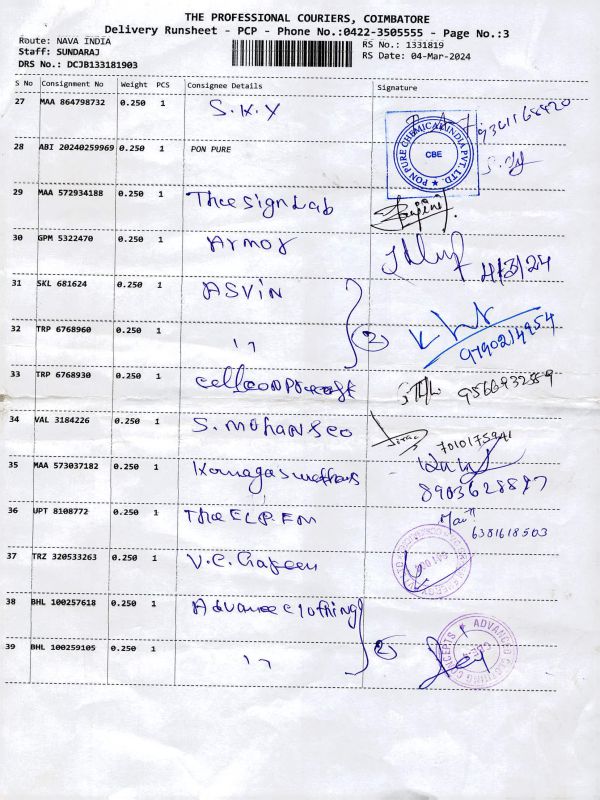 THE PROFESSIONAL COURIERS, COIMBATORE
Delivery Runsheet - PCP - Phone No.:0422-3505555 - Page No.:3
Route: NAVA INDIA
Staff: SUNDARAJ
DRS No.: DCJB133181903
RS No.: 1331819
RS Date: 04-Mar-2024
S No Consignment No Weight PCS Consignee Details Signature
27 MAA 864798732 0.250 1 S.K.Y 9361168920
PON PURE CHEMICAL INDIA PVT. LTD. CBE
28 ABI 20240259969 0.250 1 PON PURE
29 MAA 572934188 0.250 1 Thee Sign Lab
30 GPM 5322470 0.250 1 Armor 4/3/24
31 SKL 681624 0.250 1 ASVIN
32 TRP 6768960 0.250 1 " 2 9790214954
33 TRP 6768930 0.250 1 9566932559
34 VAL 3184226 0.250 1 S. Mohan &co
35 MAA 573037182 0.250 1 8903628847
36 UPT 8108772 0.250 1 The ELP. EM 6381618503
37 TRZ 320533263 0.250 1 V.C.
38 BHL 100257618 0.250 1 Advance clothing
39 BHL 100259105 0.250 1 " 2
ADVANCED CLOTHING CONCEPTS CBE-4